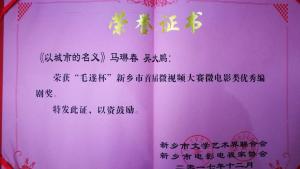 荣誉证书
《以城市的名义》马琳春 吴大鹏：
荣获“毛遂杯”新乡市首届微视频大赛微电影类优秀编
剧奖。
特发此证，以资鼓励。
新乡市文学艺术界联合会
新乡市电影电视家协会
二〇一七年十二月